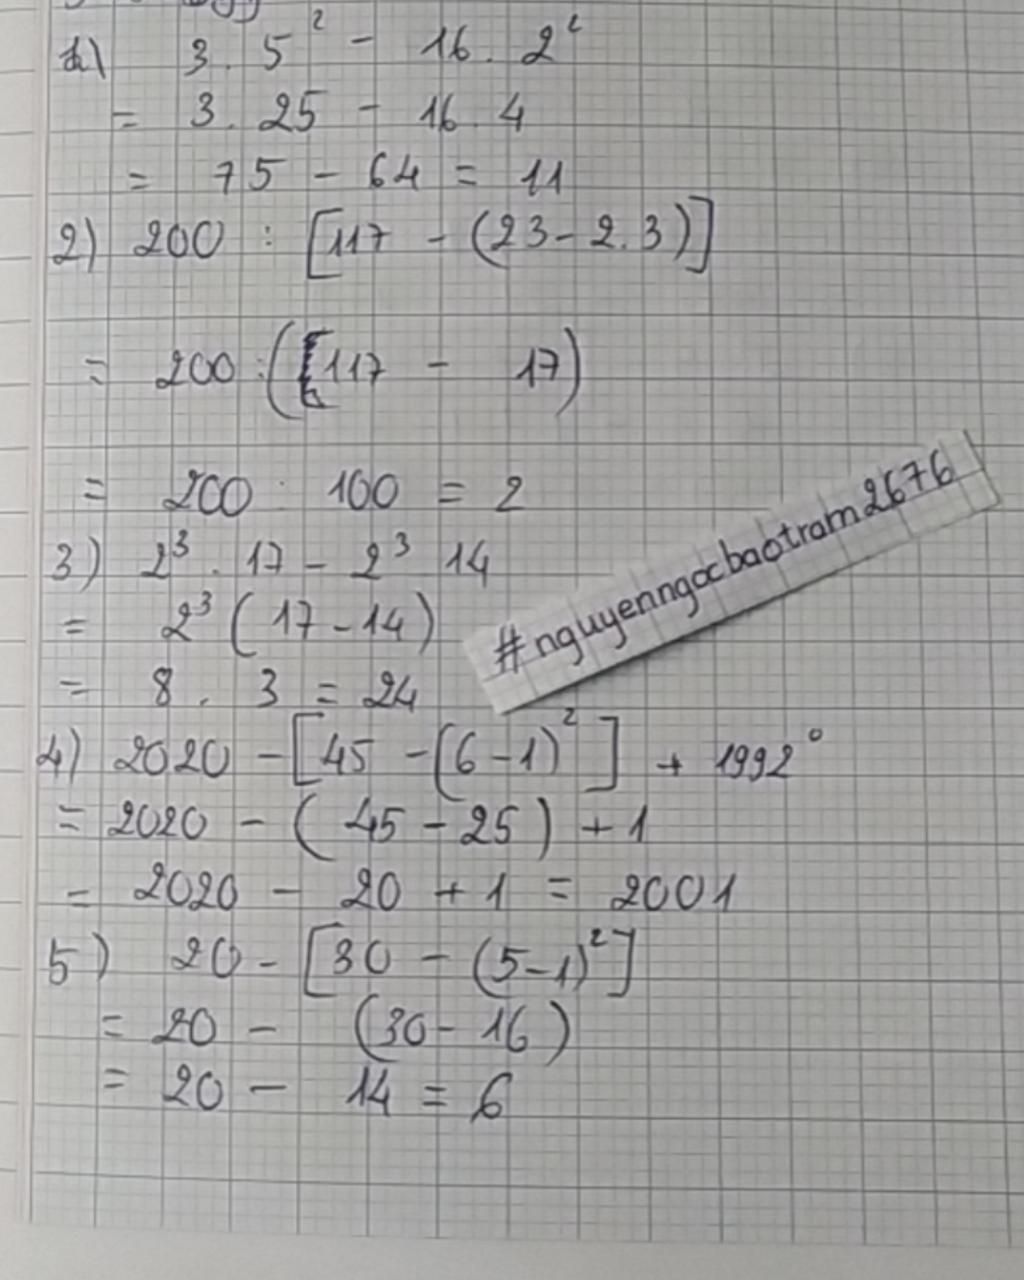 1) 3. 5² - 16. 2²
= 3. 25 - 16. 4
= 75 - 64 = 11
2) 200 : [117 - (23 - 2.3)]
= 200 : (117 - 17)
= 200 : 100 = 2
3) 2³ . 17 - 2³ 14
= 2³ (17 - 14)
= 8 . 3 = 24
#nguyenngocbaotram2676
4) 2020 - [45 - (6 - 1)²] + 1992⁰
= 2020 - (45 - 25) + 1
= 2020 - 20 + 1 = 2001
5) 20 - [30 - (5 - 1)²]
= 20 - (30 - 16)
= 20 - 14 = 6